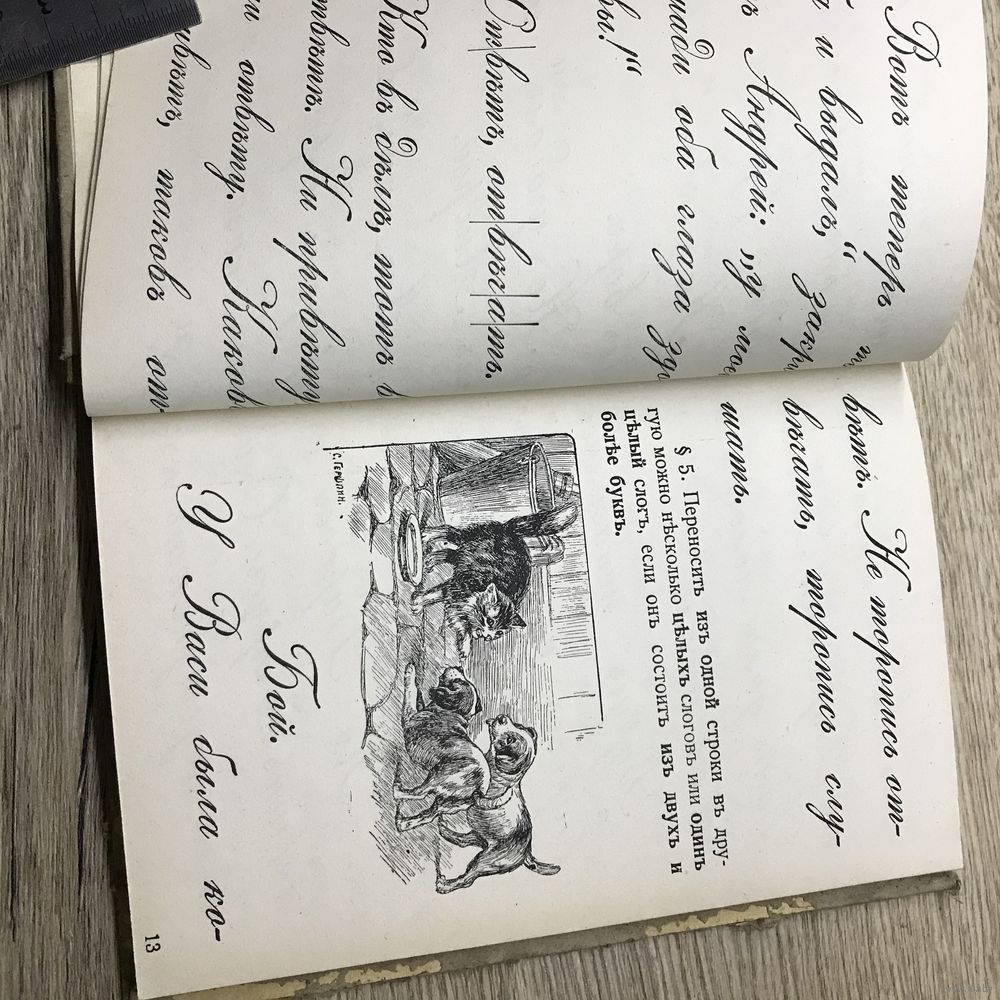 Вотъ теперь
и выдалъ,“ Закри
Андрей: „у мо
оба глаза
вы!“
От|вѣтъ, от|вѣч|а|ть.
Кто въ дѣлѣ, тотъ
отвѣтѣ. Ни привѣту
отвѣту. Каковъ
вѣтъ, таковъ от
вѣтъ. Не торопись от-
вѣчать, торопись слу-
шать.
§ 5. Переносить изъ одной строки въ дру-
гую можно нѣсколько цѣлыхъ слоговъ или одинъ
цѣлый слогъ, если онъ состоитъ изъ двухъ и
болѣе буквъ.
Бой.
У Васи была ко-
13